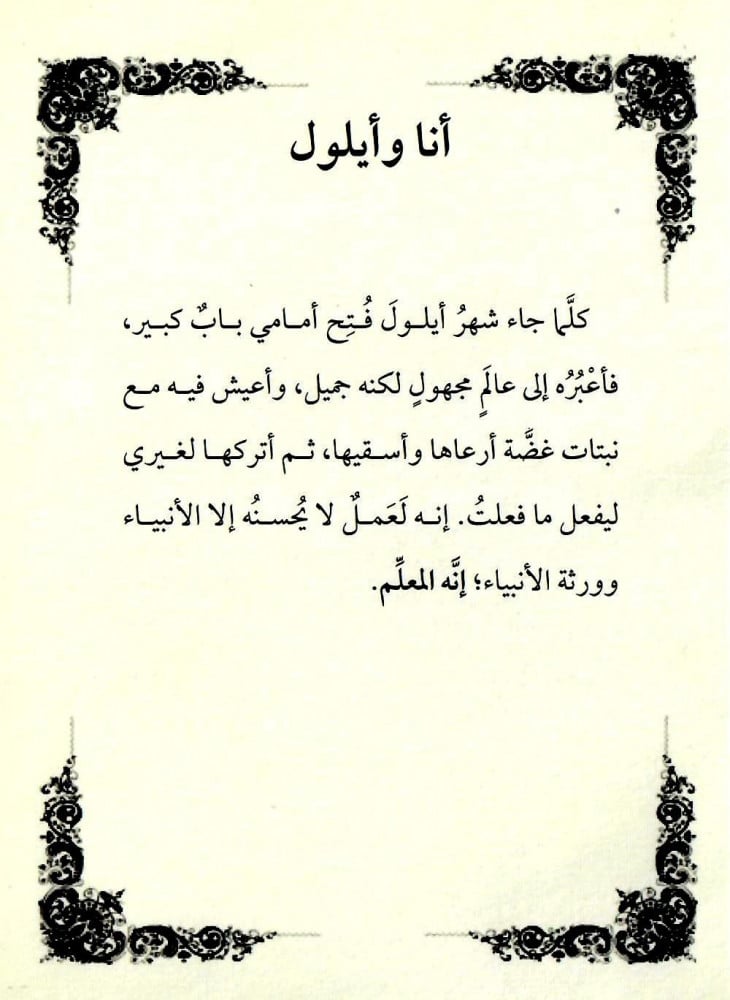 أنا وأيلول
كلَّما جاء شهرُ أيلولَ فُتِح أمامي بابٌ كبير،
فأعْبُرُه إلى عالَمٍ مجهولٍ لكنه جميل، وأعيش فيه مع
نبتات غضَّة أرعاها وأسقيها، ثم أتركها لغيري
ليفعل ما فعلتُ. إنه لَعَملٌ لا يُحسنُه إلا الأنبياء
وورثة الأنبياء؛ إنَّه المعلِّم.